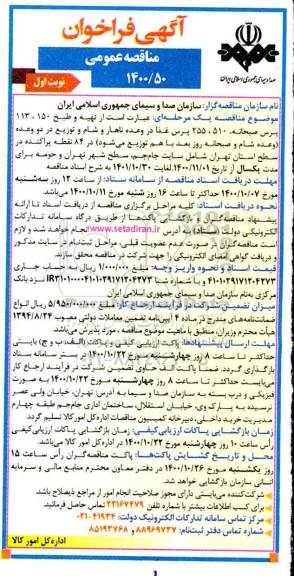 آگهی فراخوان
مناقصه عمومی
۱۴۰۰/۵۰
نوبت اول
صدا و سیمای جمهوری اسلامی ایران
نام سازمان مناقصه‌گزار: سازمان صدا و سیمای جمهوری اسلامی ایران
موضوع مناقصه یک مرحله‌ای: عبارت است از تهیه و طبخ ۱۵۰، ۱۱۳
پرس صبحانه، ۵۱۰، ۲۵۵ پرس غذا در وعده ناهار و شام و توزیع در دو وعده
(وعده شام و صبحانه روز بعد با هم توزیع می‌شود) در ۸۴ نقطه پراکنده در
سطح استان تهران شامل سایت جام‌جم، سطح شهر تهران و حومه برای
مدت یکسال از تاریخ ۱۴۰۰/۱۱/۰۱ لغایت ۱۴۰۱/۱۰/۳۰ به شرح اسناد مناقصه.
مهلت دریافت اسناد مناقصه از سامانه: از ساعت ۱۲ روز سه‌شنبه
مورخ ۱۴۰۰/۱۰/۰۷ حداکثر تا ساعت ۱۶ روز شنبه مورخ ۱۴۰۰/۱۰/۱۱ می‌باشد.
نحوه دریافت اسناد: کلیه مراحل برگزاری مناقصه از دریافت اسناد تا ارائه
پیشنهاد مناقصه‌گران و بازگشایی پاکت‌ها از طریق درگاه سامانه تدارکات
الکترونیکی دولت (ستاد) به آدرس www.setadiran.ir انجام خواهد شد و لازم
است مناقصه‌گران در صورت عدم عضویت قبلی، مراحل ثبت‌نام در سایت مذکور
و دریافت گواهی امضای الکترونیکی را جهت شرکت در مناقصه محقق سازند.
قیمت اسناد و نحوه واریز وجه: مبلغ ۱/۰۰۰/۰۰۰ ریال به حساب جاری
نزد بانک
مرکزی به‌نام سازمان صدا و سیمای جمهوری اسلامی ایران
میزان تضمین شرکت در فرآیند ارجاع کار: مبلغ ریال انواع
ضمانت‌نامه‌های مندرج در ماده ۴ آیین‌نامه تضمین معاملات دولتی مصوب ۱۳۹۴/۸/۲۴
هیأت محترم وزیران، منطبق با ماهیت موضوع مناقصه، مورد پذیرش می‌باشد.
مهلت ارسال پیشنهادها: پاکات ارزیابی کیفی و پاکات (الف، ب و ج) بایستی
حداکثر تا ساعت ۸ روز چهارشنبه مورخ ۱۴۰۰/۱۰/۲۲ در بستر سامانه ستاد
بارگذاری گردد. ضمناً پاکت الف حاوی تضمین شرکت در فرآیند ارجاع کار
می‌بایست حداکثر تا ساعت ۸ روز چهارشنبه مورخ ۱۴۰۰/۱۰/۲۲ به صورت
فیزیکی و درب بسته به سازمان صدا و سیما به آدرس: تهران، خیابان ولی عصر
نرسیده به پارک وی، خیابان استقلال، ساختمان اداری جام‌جم طبقه چهارم
مدیریت خرید داخلی، دبیرخانه کمیسیون مناقصات اداره‌کل امور کالا تسلیم گردد.
زمان بازگشایی پاکات ارزیابی‌کیفی: زمان بازگشایی پاکات ارزیابی کیفی
رأس ساعت ۱۰ روز چهارشنبه مورخ ۱۴۰۰/۱۰/۲۲ در اداره کل امور کالا می‌باشد.
محل و تاریخ گشایش پاکت‌ها: پاکت مناقصه‌گران رأس ساعت ۱۵
روز یکشنبه مورخ ۱۴۰۰/۱۰/۲۶ در دفتر معاون محترم منابع مالی و سرمایه
انسانی سازمان بازگشایی خواهد شد.
شرکت‌کننده می‌بایستی دارای مجوز صلاحیت انجام امور از مراجع ذیصلاح باشد.
برای کسب اطلاعات بیشتر با شماره تلفن ۲۲۱۶۷۴۷۹ تماس حاصل فرمائید.
مرکز تماس سامانه تدارکات الکترونیک دولت: ۴۱۹۳۴-۰۲۱
شماره تماس دفتر ثبت‌نام: ۸۸۹۶۹۷۳۷ و ۸۵۱۹۳۷۶۸
اداره‌کل امور کالا